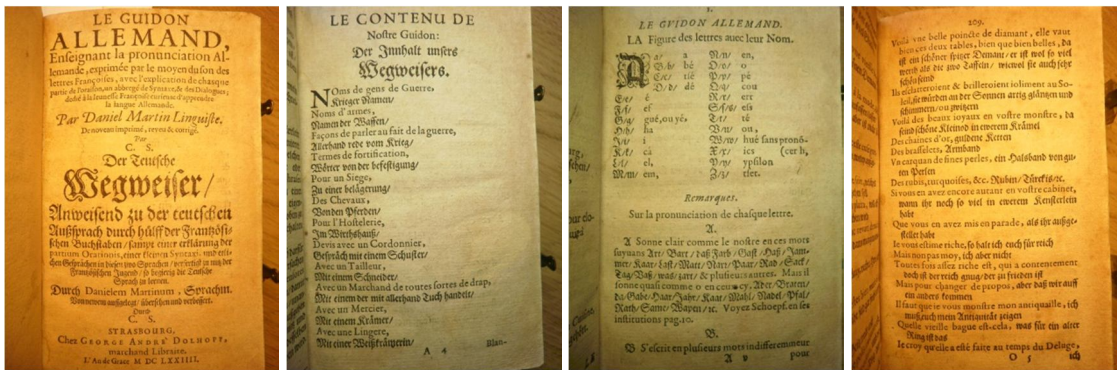 LE GUIDON
ALLEMAND,
Enseignant la pronunciation Al-
lemande, exprimée par le moyen du son des
lettres Françoises, avec l'explication de chaque
partie de l'oraison, un abbregé de Syntaxe, & des Dialogues;
dedié à la Jeunesse Françoise curieuse d'apprendre
la langue Allemande.
Par Daniel Martin Linguiste.
De nouveau imprimé, reveu & corrigé.
Par
C. S.
Der Teutsche
Wegweiser/
Anweisend zu der teutschen
Außsprach durch hülff der Französi-
schen Buchstaben / sampt einer erklärung der
partium Orationis, einer kleinen Syntaxi, und etli-
chen Gesprächen in diesen zwo Sprachen / verfasset zu nutz der
Französischen Jugend / so begierig die Teutsche
Sprach zu lernen.
Durch Danielem Martinum, Sprachm.
Von newem auffgelegt / übersehen und verbessert.
Durch
C. S.
STRASBOURG,
Chez GEORGE ANDRÉ DOLHOPF,
marchand Libraire.
L'An de Grace M DC LXXIIII.
LE CONTENU DE
Nostre Guidon:
Der Innhalt unsers
Wegweisers.
Noms de gens de Guerre,
Krieger Namen/
Noms d'armes,
Namen der Waffen/
Façons de parler au fait de la guerre,
Allerhand rede vom Krieg/
Termes de fortification,
Wörter von der befestigung/
Pour un Siege,
Zu einer belägerung/
Des Chevaux,
Von den Pferden/
Pour l'Hostelerie,
Im Wirthshauß/
Devis avec un Cordonnier,
Gespräch mit einem Schuster/
Avec un Tailleur,
Mit einem Schneider/
Avec un Marchand de toutes sortes de drap,
Mit einem der mit allerhand Tuch handelt/
Avec un Mercier,
Mit einem Krämer/
Avec une Lingere,
Mit einer Weißkrämerin/
A 4
Blan-
I.
LE GVIDON ALLEMAND.
LA Figure des lettres auec leur Nom.
A/ a N/n/ en,
B/b/ bé O/o/ o
C/c/ tsé P/p/ pé
D/d/ dé Q/q/ cou
E/e/ é R/r/ err
F/f/ ef S/s/ ess
G/g/ gué, ou yé, T/t/ té
H/h/ ha V/u/ ou,
I/i/ i W/w/ hué sans prono-
K/k/ cà X/x/ ics (cer h,
L/l/ el, Y/y/ ypsilon
M/m/ em, Z/z/ tset.
Remarques.
Sur la pronunciation de chasque lettre.
A.
A Sonne clair comme le nostre en ces mots
suyuans Art / Bart / daß Farb / Gast / Haß / Jam-
mer / Kaar / Last / Matt / Narr / Paar / Rab / Sack /
Tag / Vaß / was / zart / & plusieurs autres. Mais il
sonne quasi comme o en ceux cy. Ader / Braten /
da / Gabe / Haar / Jahr / Kaat / Mahl / Nadel / Pfal /
Rath / Same / Wapen / &c. Voyez Schoepf. en ses
institutions pag. 10.
B.
B S'escrit en plusieurs mots indifferemmeur
A v
pour
209.
Voilà vne belle poincte de diamant, elle vaut
bien ces deux tables, bien que bien belles, da
ist ein schöner spitzer Demant / er ist wol so viel
werth als die zwo Taffeln / wiewol sie auch sehr
schön seind
Ils esclatteroient & brilleroient ioliment au So-
leil, sie würden an der Sonnen artig gläntzen und
schimmern / ou zwitzern
Voilà des beaux ioyaux en vostre monstre, da
seind schöne Kleinod in ewerem Krämel
Des chaines d'or, güldene Ketten
Des brasselets, Armband
Vn carquan de fines perles, ein Halsband von gu-
ten Perlen
Des rubis, turquoises, &c. Rubin / Türckis / &c.
Si vous en avez encore autant en vostre cabinet,
wann ihr noch so viel in ewerem Kensterlein
habt
Que vous en avez mis en parade, als ihr außge-
stellet habt
Ie vous estime riche, so halt ich euch für reich
Mais non pas moy, ich aber nicht
Toutes fois assez riche est, qui a contentement
doch ist der reich gnug / der zu frieden ist
Mais pour changer de propos, aber daß wir auff
ein anders kommen
Il faut que ie vous monstre mon antiquaille, ich
muß euch mein Antiquität zeigen
Quelle vieille bague est-cela, was für ein alter
Ring ist das
Ie croy qu'elle a esté faite au temps du Deluge,
O 5
ich